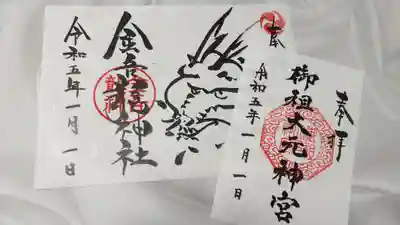 奉拝
御祖大元神宮
令和五年一月一日
奉
金吾龍神社
令和五年一月一日